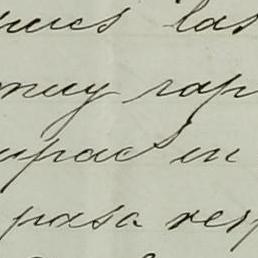 pues las
muy rap
upac en
pasa resp